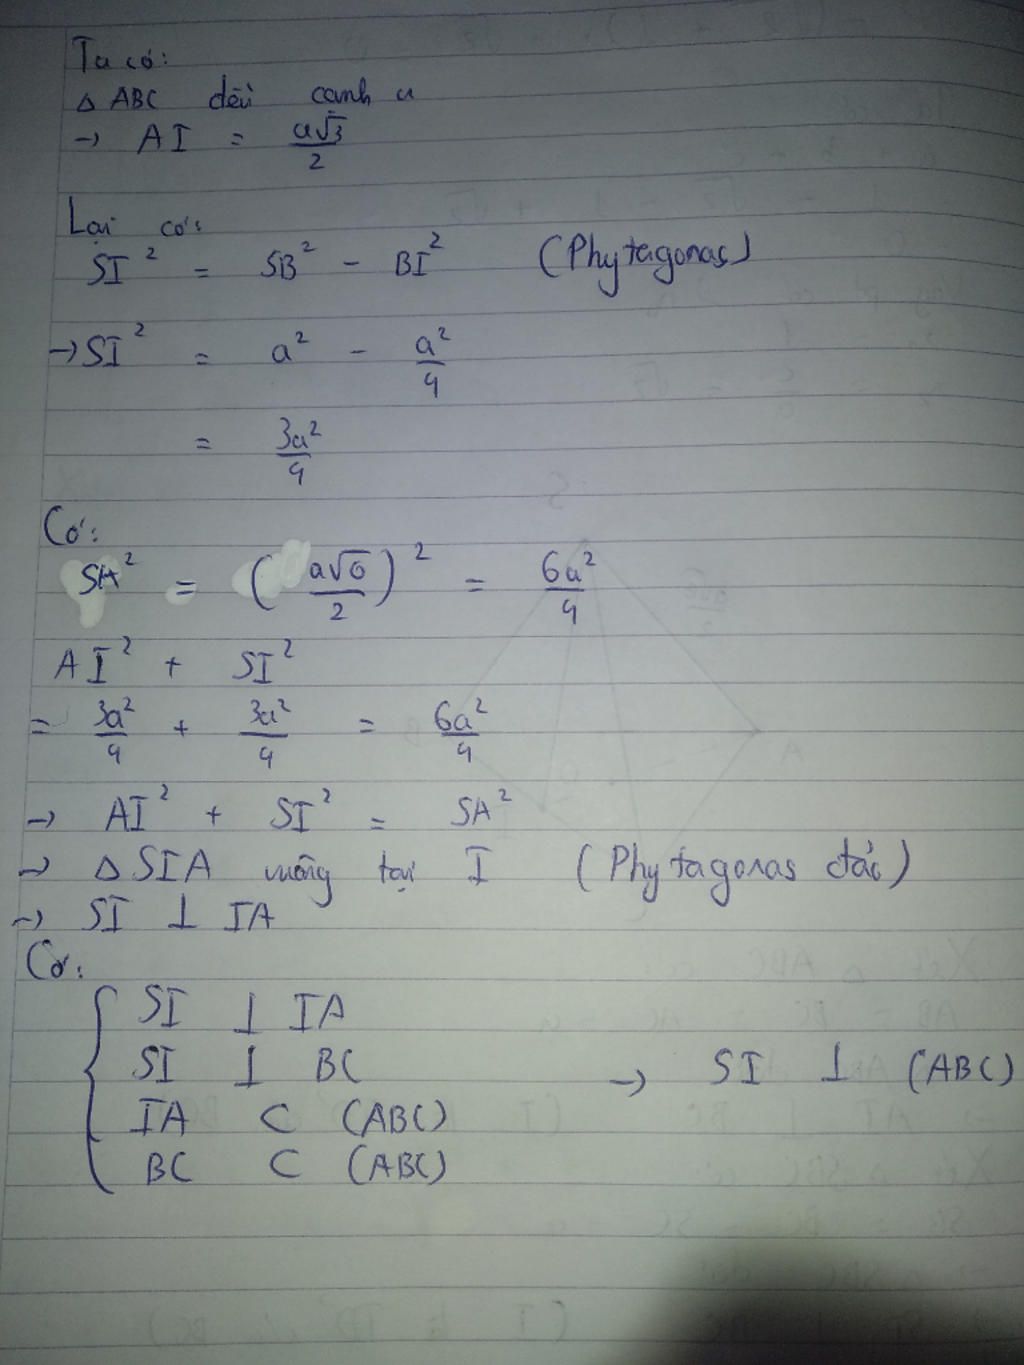 Ta có:
Δ ABC đều cạnh a
→ AI = a√3/2
Lại có:
SI² = SB² - BI² (Phytagoras)
→ SI² = a² - a²/4
= 3a²/4
Có:
SA² = (a√6/2)² = 6a²/4
AI² + SI²
= 3a²/4 + 3a²/4 = 6a²/4
→ AI² + SI² = SA²
→ Δ SIA vuông tại I (Phytagoras đảo)
→ SI ⊥ IA
Có:
SI ⊥ IA
SI ⊥ BC → SI ⊥ (ABC)
IA ⊂ (ABC)
BC ⊂ (ABC)